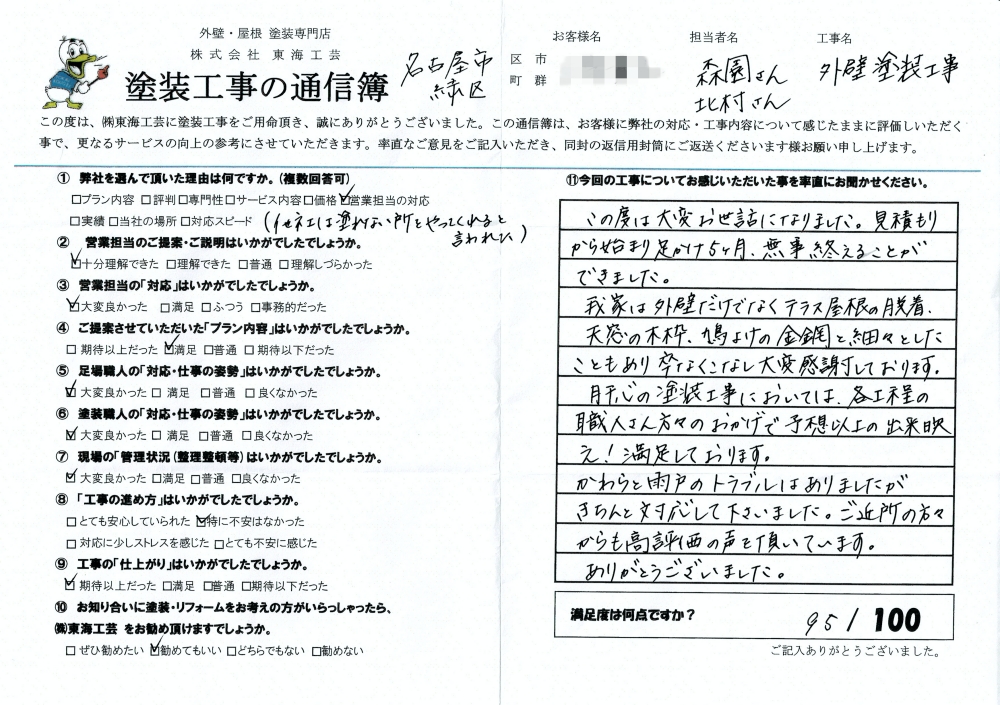 外壁・屋根 塗装専門店
株式会社 東海工芸
塗装工事の通信簿
名古屋市
緑区
区 市
町 群
お客様名
担当者名
工事名
森園さん
北村さん
外壁塗装工事
この度は、㈱東海工芸に塗装工事をご用命頂き、誠にありがとうございました。この通信簿は、お客様に弊社の対応・工事内容について感じたままに評価しいただく
事で、更なるサービスの向上の参考にさせていただきます。率直なご意見をご記入いただき、同封の返信用封筒にご返送くださいます様お願い申し上げます。
① 弊社を選んで頂いた理由は何ですか。(複数回答可)
□プラン内容 □評判□専門性□サービス内容□価格☑営業担当の対応
□実績 □当社の場所 □対応スピード (他社は塗れない所とやってくれると
言われた)
② 営業担当のご提案・ご説明はいかがでしたでしょうか。
☑十分理解できた □理解できた □普通 □理解しづらかった
③ 営業担当の「対応」はいかがでしたでしょうか。
☑大変良かった □満足 □ふつう □事務的だった
④ ご提案させていただいた「プラン内容」はいかがでしたでしょうか。
□ 期待以上だった ☑満足 □普通 □ 期待以下だった
⑤ 足場職人の「対応・仕事の姿勢」はいかがでしたでしょうか。
☑ 大変良かった □ 満足 □普通 □良くなかった
⑥ 塗装職人の「対応・仕事の姿勢」はいかがでしたでしょうか。
☑ 大変良かった □ 満足 □普通 □良くなかった
⑦ 現場の「管理状況(整理整頓等)はいかがでしたでしょうか。
☑ 大変良かった □満足 □普通 □良くなかった
⑧ 「工事の進め方」はいかがでしたでしょうか。
□とても安心していられた ☑特に不安はなかった
□対応に少しストレスを感じた □とても不安に感じた
⑨ 工事の「仕上がり」はいかがでしたでしょうか。
☑ 期待以上だった □満足 □普通 □期待以下だった
⑩ お知り合いに塗装・リフォームをお考えの方がいらっしゃったら、
㈱東海工芸 をお勧め頂けますでしょうか。
□ぜひ勧めたい ☑勧めてもいい □どちらでもない □勧めない
⑪今回の工事についてお感じいただいた事を率直にお聞かせください。
この度は大変お世話になりました。見積もり
から始まり足かけ5ヶ月、無事終えることが
できました。
我家は外壁だけでなくテラス屋根の脱着、
天窓の木枠、鳩よけの金網と細々とした
こともあり卒なくこなし大変感謝しております。
肝心の塗装工事においては、各工程の
職人さん方々のおかげで予想以上の出来映
え!満足しております。
かわらと雨戸のトラブルはありましたが
きちんと対応して下さいました。ご近所の方々
からも高評価の声を頂いています。
ありがとうございました。
満足度は何点ですか? 95 / 100
ご記入ありがとうございました。